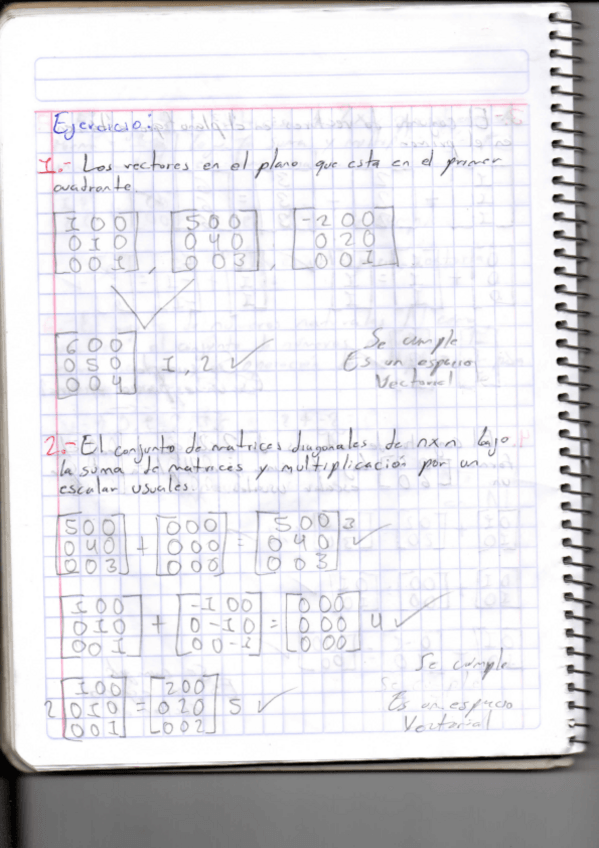 Ejercicio:
1.- Los vectores en el plano que esta en el primer
cuadrante.
[1 0 0] [5 0 0] [-2 0 0]
[0 1 0] [0 4 0] [0 2 0]
[0 0 1] , [0 0 3] , [0 0 1]
[6 0 0] Se cumple
[0 5 0] 1, 2 ✓ Es un espacio
[0 0 4] Vectorial
2.- El conjunto de matrices diagonales de nxn bajo
la suma de matrices y multiplicación por un
escalar usuales.
[5 0 0] [0 0 0] [5 0 0] 3
[0 4 0] + [0 0 0] = [0 4 0] ✓
[0 0 3] [0 0 0] [0 0 3]
[1 0 0] [-1 0 0] [0 0 0]
[0 1 0] + [0 -1 0] = [0 0 0] 4 ✓
[0 0 1] [0 0 -1] [0 0 0]
Se cumple
[1 0 0] [2 0 0]
2 [0 1 0] = [0 2 0] 5 ✓ Es un espacio
[0 0 1] [0 0 2] Vectorial